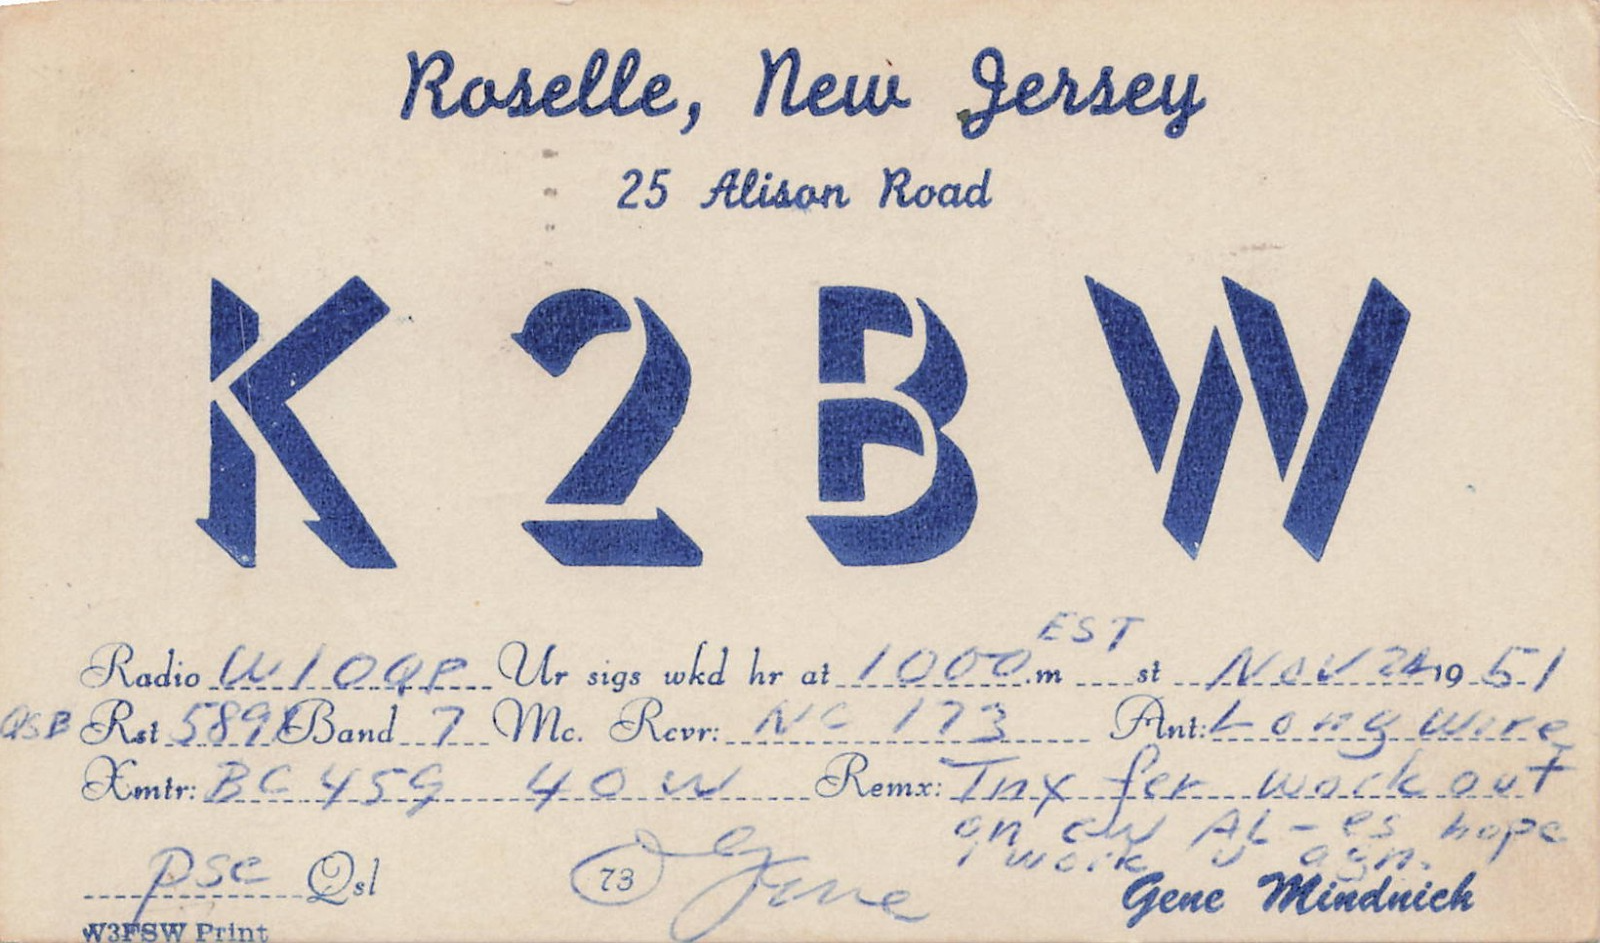 Roselle, New Jersey
25 Alison Road
K2BW
EST
Radio W1OQP Ur sigs wkd hr at 1000 m st Nov 24 1951
QSB Rst 589X Band 7 Mc. Rcvr: NC 173 Ant: Long wire
Xmtr: BC 459 40 W Remx: Tnx fer work out
on cw AL - es hope
work u agn.
pse Qsl 73 Gene Gene Mindnich
W3FSW Print